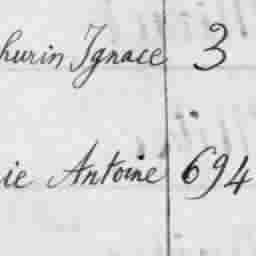 hurin Ignace 3
ie Antoine 694